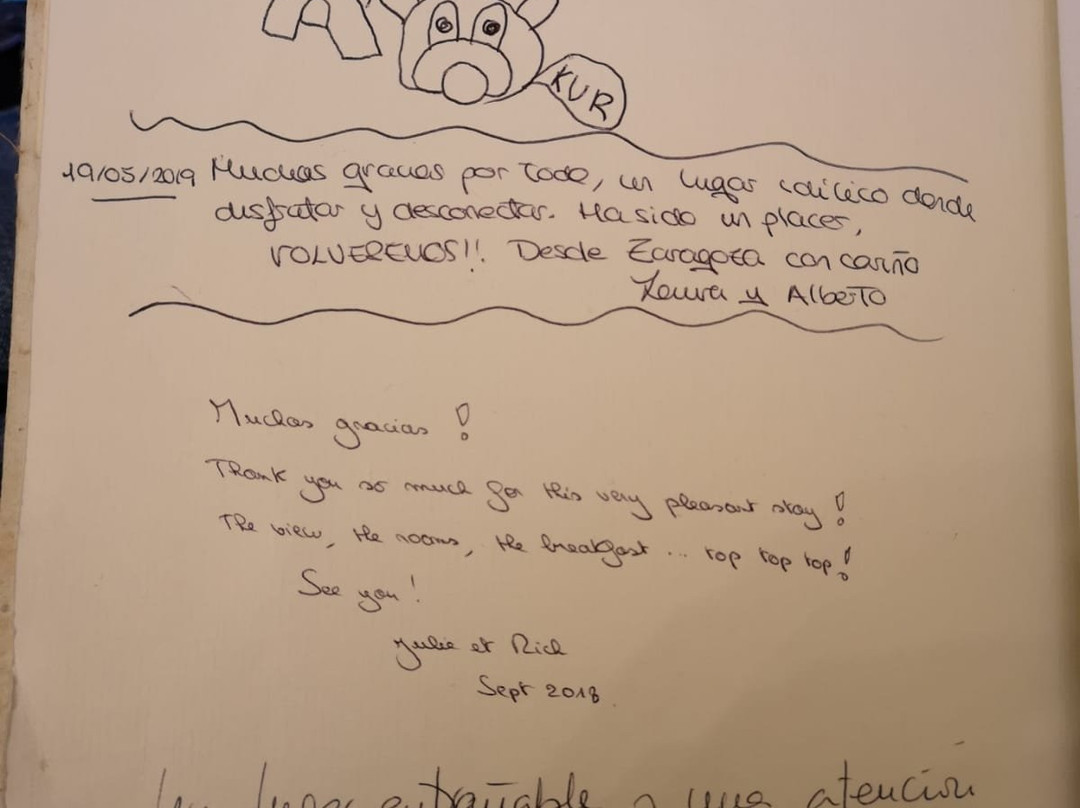 KUR
19/05/2019 Muchas gracias por todo, un lugar idílico donde
disfrutar y desconectar. Ha sido un placer,
VOLVEREMOS!! Desde Zaragoza con cariño
Laura y Alberto
Muchas gracias !
Thank you so much for this very pleasant stay !
The view, the rooms, the breakfast ... top top top !
See you !
Julie et Rich
Sept 2018
Un lugar entrañable y una atención